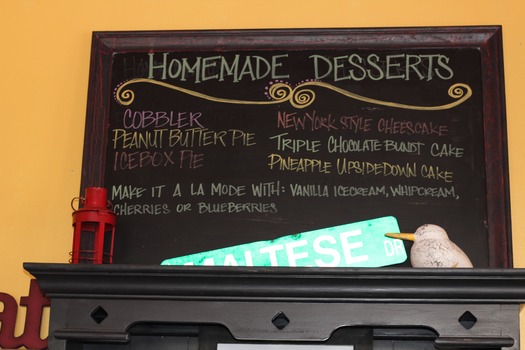 HOMEMADE DESSERTS
COBBLER
PEANUT BUTTER PIE
ICEBOX PIE
NEW YORK STYLE CHEESCAKE
TRIPLE CHOCOLATE BUNDT CAKE
PINEAPPLE UPSIDEDOWN CAKE
MAKE IT A LA MODE WITH: VANILLA ICECREAM, WHIPCREAM,
CHERRIES OR BLUEBERRIES
MALTESE DR
at